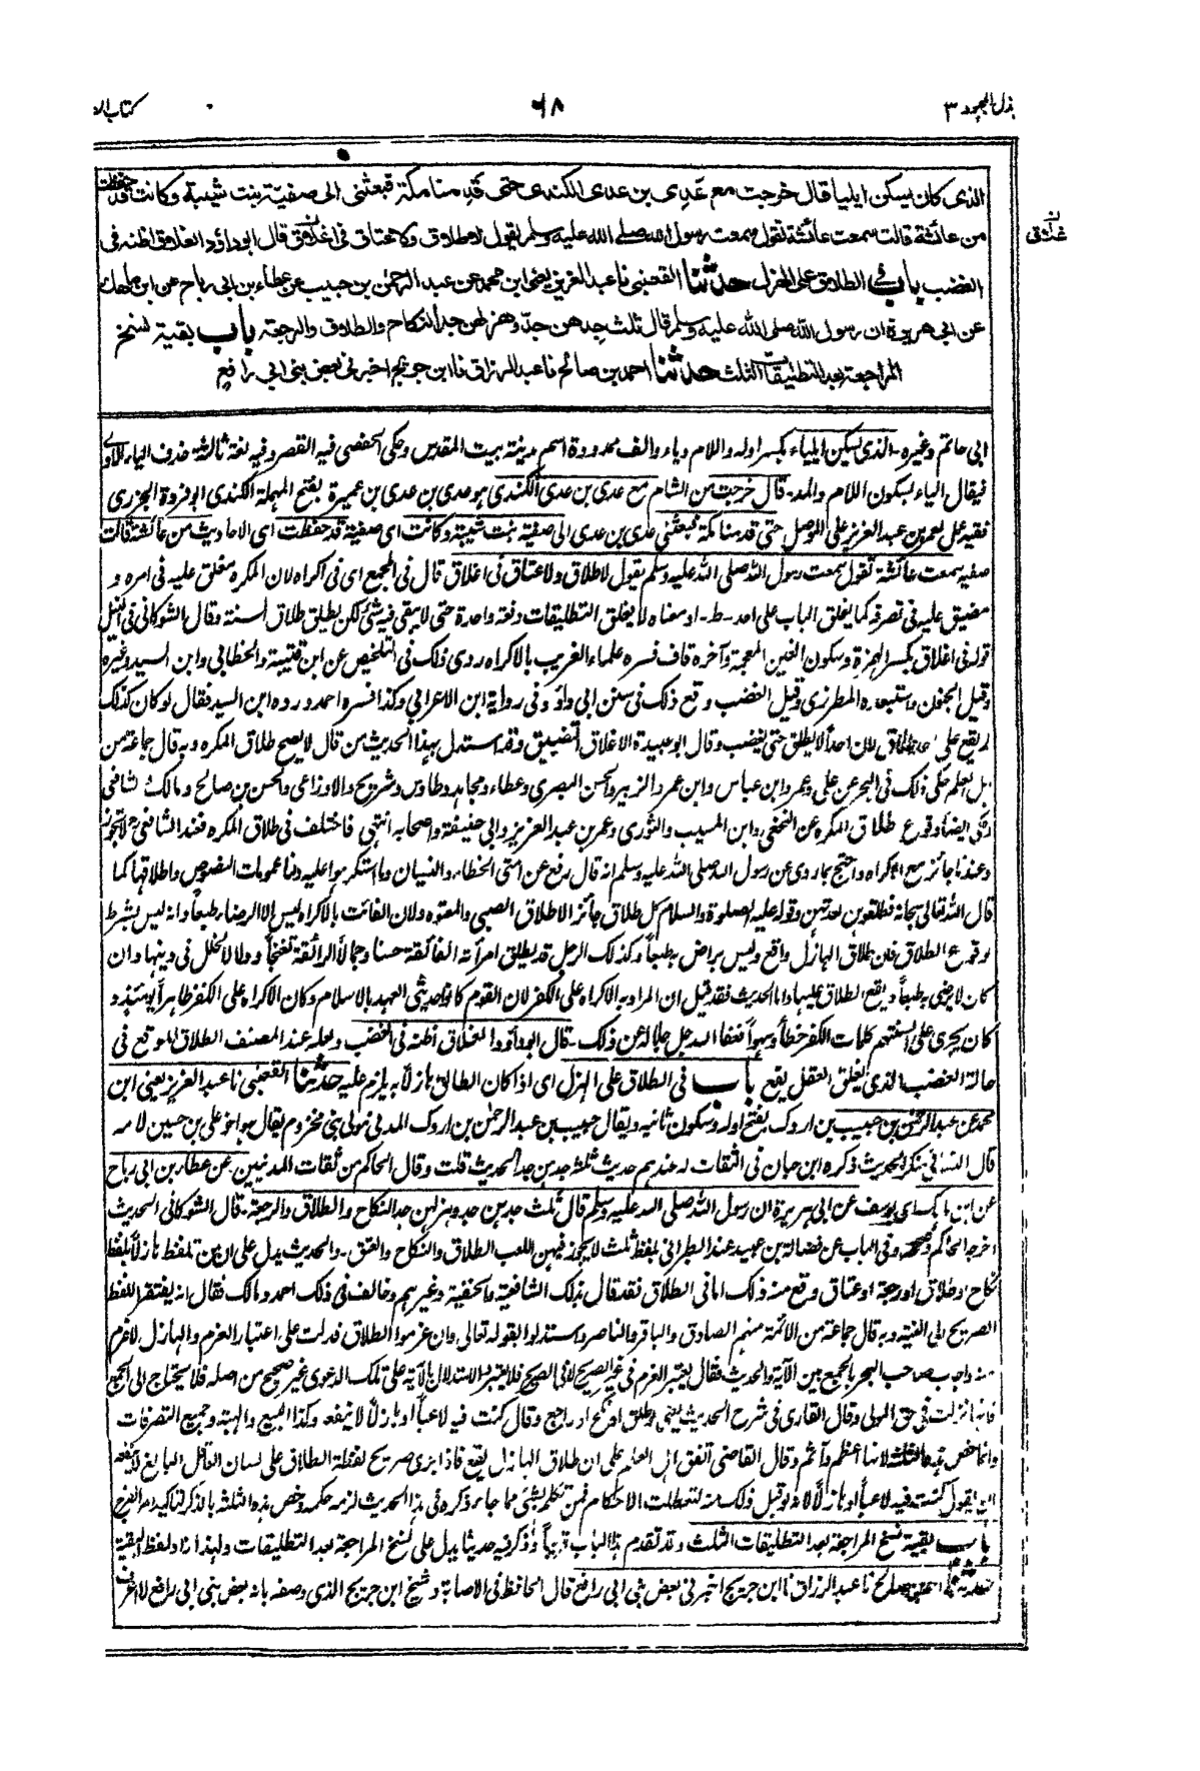 بذل المجهود ٣
٦٨
كتاب الا
الذى كان يسكن ايليا قال خرجت مع عدى بن عدى الكندى حتى قدمنا مكة فبعثنى الى صفية بنت شيبة وكانت قد حفظت
من عائشة قالت سمعت عائشة تقول سمعت رسول الله صلى الله عليه وسلم يقول لا طلاق ولا عتاق فى اغلاق قال ابو داؤد الغلاق اظنه فى
الغضب باب فى الطلاق على الهزل حدثنا القعنبى نا عبد العزيز يعنى ابن محمد عن عبد الرحمن بن حبيب عن عطاء بن ابى رباح عن ابن ماهك
عن ابى هريرة ان رسول الله صلى الله عليه وسلم قال ثلث جدهن جد وهزلهن جد النكاح والطلاق والرجعة باب بقية نسخ
المراجعة بعد التطليقات الثلث حدثنا احمد بن صالح نا عبد الرزاق نا ابن جريج اخبرنى بعض بنى ابى رافع
ابى حاتم وغيره ۔ الذى يسكن ايلياء بكسر اوله واللام وياء والف ممدودة اسم مدينة بيت المقدس وحكى الحفصى فيه القصر وفيه لغة ثالثة حذف الياء الاولى
فيقال الياء بسكون اللام والمد ۔ قال خرجت من الشام مع عدى بن عدى الكندى هو عدى بن عدى بن عميرة بفتح المهملة الكندى ابو فروة الجزرى
فقيه عمل لعمر بن عبد العزيز على الموصل حتى قدمنا مكة فبعثنى عدى بن عدى الى صفية بنت شيبة وكانت اى صفية قد حفظت اى الاحاديث من عائشة قالت
صفية سمعت عائشة تقول سمعت رسول الله صلى الله عليه وسلم يقول لا طلاق ولا عتاق فى اغلاق قال فى المجمع اى فى اكراه لان المكره مغلق عليه فى امره و
مضيق عليه فى تصرفه كما يغلق الباب على احد ۔ ط ۔ او معناه لا يغلق التطليقات دفعة واحدة حتى لا يبقى فيه شئ لكن يطلق طلاق السنة وقال الشوكانى فى النيل
قوله فى اغلاق بكسر الهمزة وسكون الغين المعجمة وآخره قاف فسره علماء الغريب بالاكراه روى ذلك فى التلخيص عن ابن قتيبة والخطابى وابن السيد وغيره
وقيل الجنون واستبعده المطرزى وقيل الغضب وقع ذلك فى سنن ابى داؤد وفى رواية ابن الاعرابى وكذا فسره احمد ورده ابن السيد فقال لو كان كذلك
لم يقع على احد طلاق لان احداً لا يطلق حتى يغضب وقال ابو عبيدة الاغلاق التضييق وقد استدل بهذا الحديث من قال لا يصح طلاق المكره وبه قال جماعة من
اهل العلم حكى ذلك فى البحر عن على وعمر وابن عباس وابن عمر والزبير والحسن البصرى وعطاء ومجاهد وطاوس وشريح والاوزاعى والحسن بن صالح ومالك والشافعى
وحكى ايضا وقوع طلاق المكره عن النخعى وابن المسيب والثورى وعمر بن عبد العزيز وابى حنيفة واصحابه انتهى فاختلف فى طلاق المكره فعند الشافعى لا يجوز
وعندنا جائز مع الاكراه واحتج بما روى عن رسول الله صلى الله عليه وسلم انه قال رفع عن امتى الخطاء والنسيان وما استكرهوا عليه ولنا عمومات النصوص واطلاقها كما
قال الله تعالى سبحانه فطلقوهن لعدتهن وقوله عليه الصلوة والسلام كل طلاق جائز الا طلاق الصبى والمعتوه ولان الفائت بالاكراه ليس الا الرضاء طبعاً وانه ليس بشرط
لوقوع الطلاق فان طلاق الهازل واقع وليس براض به طبعاً وكذلك الرجل قد يطلق امرأته الفائقة حسنا وجمالاً الرائقة تغنجاً ودلالا لخلل فى دينها وان
كان لا يرضى به طبعاً ويقع الطلاق عليها واما الحديث فقد قيل ان المراد به الاكراه على الكفر لان القوم كانوا حديثى العهد بالاسلام وكان الاكراه على الكفر ظاهراً يومئذ و
كان يجرى على السنتهم كلمات الكفر خطأ وسهواً فعفا الله جل جلاله عن ذلك ۔ قال ابو داؤد الغلاق اظنه فى الغضب ولعله عند المصنف الطلاق الموقع فى
حالة الغضب الذى يغلق العقل يقع باب فى الطلاق على الهزل اى اذا كان الطالق هازلاً به يلزم عليه حدثنا القعنبى نا عبد العزيز يعنى ابن
محمد عن عبد الرحمن بن حبيب بن اروك بفتح اوله وسكون ثانيه ويقال حبيب بن عبد الرحمن بن اروك المدنى مولى بنى مخزوم يقال هو اخو على بن حسين لامه
قال النسائى منكر الحديث ذكره ابن حبان فى الثقات له عندهم حديث ثلثة جدهن جد الحديث قلت وقال الحاكم من ثقات المدنيين عن عطاء بن ابى رباح
عن ابن ماهك اى يوسف عن ابى هريرة ان رسول الله صلى الله عليه وسلم قال ثلث جدهن جد وهزلهن جد النكاح والطلاق والرجعة ۔ قال الشوكانى الحديث
اخرجه الحاكم وصححه وفى الباب عن فضالة بن عبيد عند الطبرانى بلفظ ثلث لا يجوز فيهن اللعب الطلاق والنكاح والعتق ۔ والحديث يدل على ان من تلفظ هازلاً بلفظ
نكاح او طلاق او رجعة او عتاق وقع منه ذلك اما فى الطلاق فقد قال بذلك الشافعية والحنفية وغيرهم وخالف فى ذلك احمد ومالك فقال انه يفتقر اللفظ
الصريح الى النية وبه قال جماعة من الائمة منهم الصادق والباقر والناصر واستدلوا بقوله تعالى وان عزموا الطلاق فدلت على اعتبار العزم والهازل لا عزم
منه واجاب صاحب البحر بالجمع بين الآية والحديث فقال يعتبر العزم فى غير الصريح لا فى الصريح فلا يعتبر والاستدلال بالآية على تلك الدعوى غير صحيح من اصله فلا يحتاج الى الجمع
فانها نزلت فى حق المولى وقال القارى فى شرح الحديث يعنى لو طلق او نكح او راجع وقال كنت فيه لاعباً او هازلاً لا ينفعه وكذا البيع والهبة وجميع التصرفات
وانما خص هذه الثلثة لانها اعظم واتم وقال القاضى اتفق اهل العلم على ان طلاق الهازل يقع فاذا جرى صريح لفظة الطلاق على لسان العاقل البالغ لا ينفعه
ان يقول كنت فيه لاعباً او هازلاً لانه لو قبل ذلك منه لتعطلت الاحكام فمن تكلم بشئ مما جاء ذكره فى هذا الحديث لزمه حكمه وخص هذه الثلثة بالذكر لتاكيد امر الفرج
باب بقية نسخ المراجعة بعد التطليقات الثلث وقد تقدم هذا الباب قريباً وذكر فيه حديثا يدل على نسخ المراجعة بعد التطليقات ولهذا زاد لفظ البقية
حدثنا احمد بن صالح نا عبد الرزاق نا ابن جريج اخبرنى بعض بنى ابى رافع قال الحافظ فى الاصابة وشيخ ابن جريج الذى وصفه بانه بعض بنى ابى رافع لا اعرف